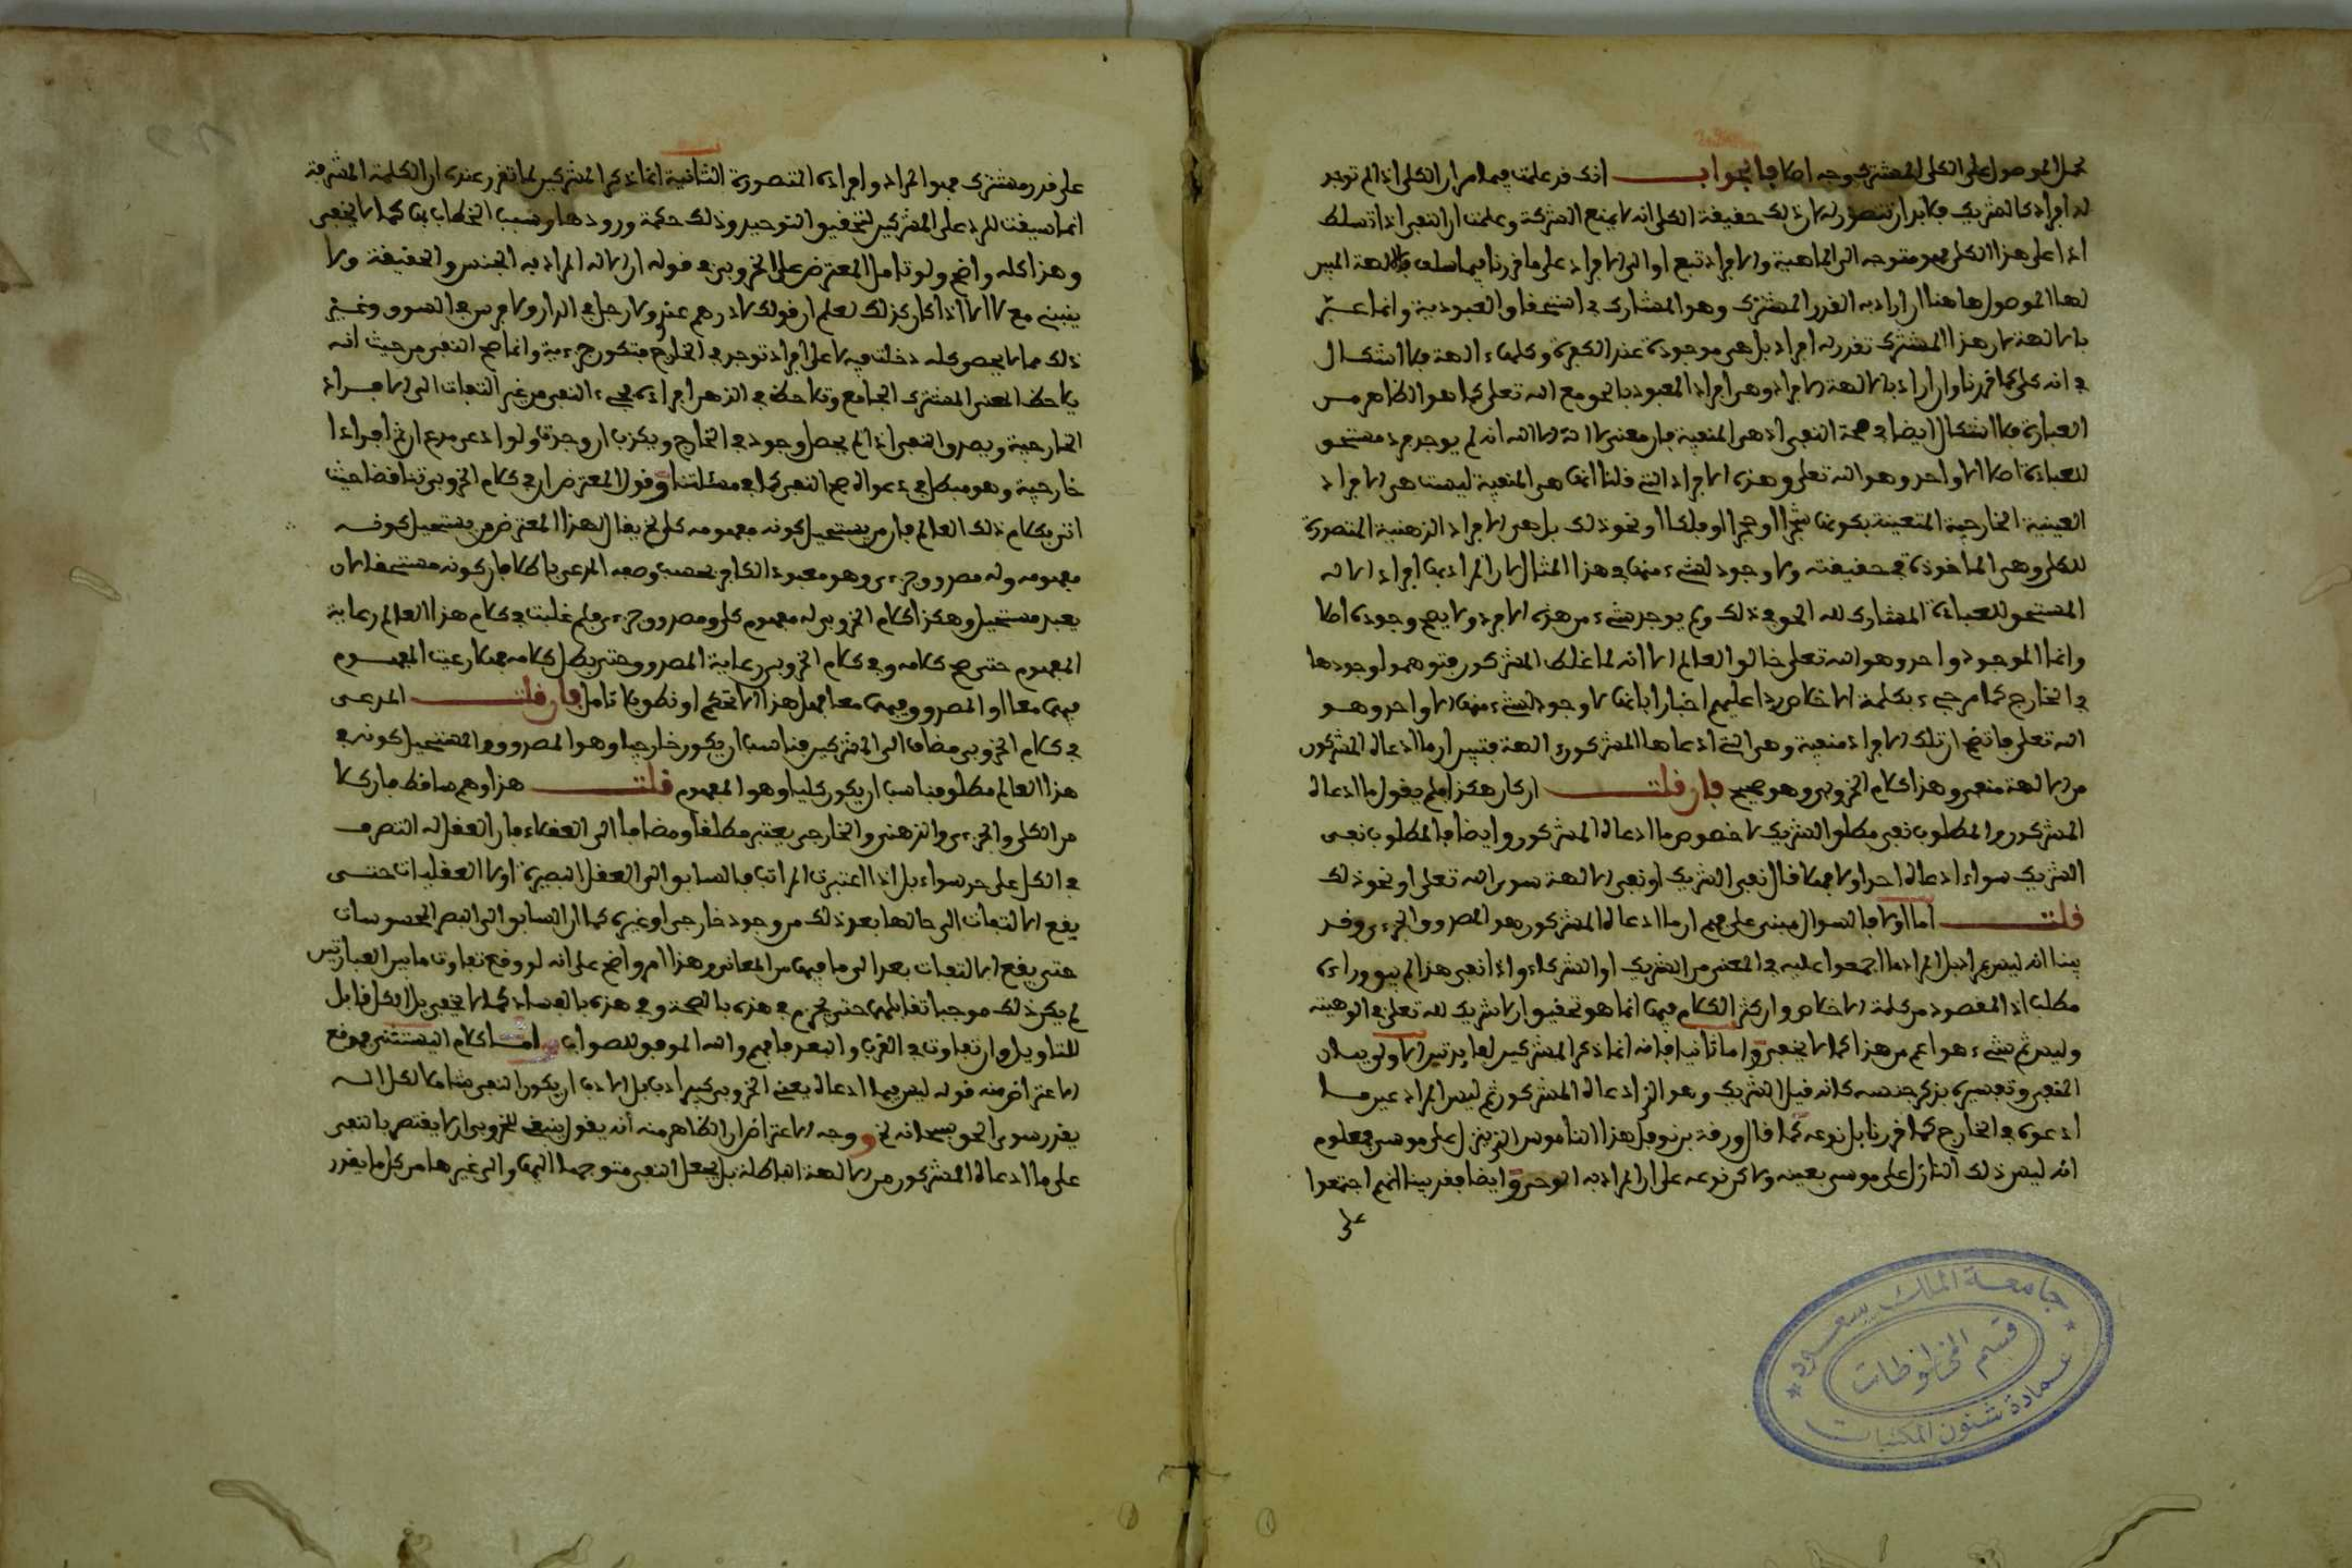 تحمل الموصول على الكلى المشترك وجه اصلا فالجواب انك قد علمت فيما مر ان الكلى اذا لم توجد
له افراد كالشريك فلابد ان تتصور له لان ذلك حقيقة الكلى انه لا يمنع الشركة وعلمت ان النفى اذا تسلط
اذا على هذا الكلى فهو متوجه الى الماهية والافراد تبع او الى الافراد على ما قررنا فيما سلف فالالهة المبين
لها الموصول هاهنا ان اراد به القدر المشترك وهو المشارك فى استحقاق العبودية وانما عبر
بالالهة لان هذا المشترك تقرر له افراد بل هى موجودة عند الكفرة وكلها ءالهة فلا اشكال
فى انه كلى كما قررنا وان اراد بالالهة الافراد وهى افراد المعبود بالحق مع الله تعلى كما هو الظاهر من
العبارة فلا اشكال ايضا فى صحة النفى اذ هى المنفية فان معنى لا اله الا الله انه لم يوجد فرد مستحق
للعبادة اصلا الا واحد وهو الله تعلى وهذه الافراد التى قلنا انها هى المنفية ليست هى الافراد
العينية الخارجية المتعينة بكونها شجرا او حجرا او فلكا او نحو ذلك بل هى الافراد الذهنية المتصورة
للكلى وهى الماخوذة فى حقيقته ولا وجود لشىء منها فى هذا المثال لان المراد بها افراد الاله
المستحق للعبادة المشارك لله الحق فى ذلك ولم يوجد شىء من هذه الافراد ولا يصح وجوده اصلا
وانما الموجود واحد وهو الله تعلى خالق العالم الا انه لما غلط المشركون فتوهموا وجودها
فى الخارج كما مر جىء بكلمة الاخلاص ردا عليهم اخبارا بانها لا وجود لشىء منها الا واحد وهو
الله تعلى فاتضح ان تلك الافراد منفية وهى التى ادعاها المشركون ءالهة فتبين ان ما ادعاه المشركون
من الالهة منفى وهذا كلام الخروبى وهو صحيح فان قلت ان كان هكذا فلم يقول ما ادعاه
المشركون والمطلوب نفى مطلق الشريك لا خصوص ما ادعاه المشركون وايضا فالمطلوب نفى
الشريك سواء ادعاه احد او لا فهلا قال نفى الشريك او نفى الالهة سوى الله تعلى او نحو ذلك
قلت اما اولا فالسوال مبنى على فهم ان ما ادعاه المشركون هو المصدوق الجزءى وقد
بينا انه ليس بمراد بل المراد ما اجمعوا عليه فى المعنى من الشريك او الشركاء واذا نفى هذا لم يبق وراءه
مطلب اذ المقصود من كلمة الاخلاص وان كثر الكلام فيها انما هو تحقيق ان لا شريك لله تعلى فى الوهيته
وليس ثم شىء هو اعم من هذا كما لا يخفى واما ثانيا فانه انما ذكر المشركين لفايدتين الاولى بيان
المنفى وتفسيره بذكر جنسه كانه قيل الشريك وهو الذى ادعاه المشركون ثم ليس المراد عين ما
ادعوه فى الخارج كما قررنا بل نوعه كما قال ورقة بن نوفل هذا الناموس الذى نزل على موسى فمعلوم
انه ليس ذلك النازل على موسى بعينه ولكن نوعه على ان المراد به الوحى وايضا فقد بينا انهم اجتمعوا
على
على قدر مشترك فهو المراد وافراده المتصورة الثانية انما ذكر المشركين لما تقرر عنده ان الكلمة المشرفة
انما سيقت للرد على المشركين لتحقيق التوحيد وذلك حكمة ورودها وسبب الخطاب بها كما لا يخفى
وهذا كله واضح ولو تامل المعترض على الخروبى فى قوله ان الاله المراد به الجنس والحقيقة ولا
ينبنى مع لا الا اذا كان كذلك لعلم ان قولك لا درهم عندى ولا رجل فى الدار ولا فرس فى السوق وغير
ذلك مما لا يحصى كله دخلت فيه لا على افراد توجد فى الخارج فتكون جزءية وانما صح النفى من حيث انه
لاحظ المعنى المشترك الجامع وتلاحظ فى الذهن افراده فجىء النفى من غير التفات الى الافراد
الخارجية ويصدق النفى اذا لم يحصل وجود فى الخارج ويكذب ان وجد ولو ادعى مدع ان ثم افرادا
خارجية وهو مبطل فى دعواه صح النفى كما فى مسئلتنا وقول المعترض ان فى كلام الخروبى تناقضا حيث
اتى بكلام ذلك العالم فان من يستحيل كونه مفهومه كلى يقال لهذا المعترض من يستحيل كونه
مفهومه وله مصدوق جزءى وهو معبود الكافر بحسب وصفه المدعى باطلا فان كونه مستحقا لان
يعبد مستحيل وهكذا كلام الخروبى له مفهوم كلى ومصدوق جزءى فلم غلبت فى كلام هذا العالم رعاية
المفهوم حتى صح كلامه وفى كلام الخروبى رعاية المصدوق حتى بطل كلامه فهلا رعيت المفهوم
فيهما معا او المصدوق فيهما معا فهل هذا الا تحكم او نطق بلا تامل فان قلت المدعى
فى كلام الخروبى مضاف الى المشركين فناسب ان يكون خارجيا وهو المصدوق والمستحيل كونه فى
هذا العالم مطلق فناسب ان يكون كليا وهو المفهوم قلت هذا وهم ساقط فان كلا
من الكلى والجزءى والذهنى والخارجى يعتبر مطلقا ومضافا الى العقلاء فان العقل له التصرف
فى الكل على حد سواء بل اذا اعتبرت المراتب فالسابق الى العقل البصيرة اولا العقليات حتى
يقع الالتفات الى حالها بعد ذلك من وجود خارجى او غيره كما ان السابق الى البصر المحسوسات
حتى يقع الالتفات بعد الى ما فيها من المعانى وهذا امر واضح على انه لو وقع تفاوت ما بين العبارتين
لم يكن ذلك موجبا تقابلهما حتى يجزم فى هذه بالصحة وفى هذه بالفساد كما لا يخفى بل الكل قابل
للتاويل وان تفاوت فى القرب والبعد فافهم والله الموفق للصواب اما كلام اليسيتنى فموقع
الاعتراض منه قوله ليس فيما ادعاه بعض الخروبى كبير ادب بل الادب ان يكون النفى شاملا لكل اله
يقدر سوى الحق سبحانه نحو ووجه الاعتراض ان الظاهر منه أنه يقول ينبغى للخروبى ان لا يقتصر بالنفى
على ما ادعاه المشركون من الالهة الباطلة بل يجعل النفى متوجها اليها والى غيرها من كل ما يقدر
جامعة الملك سعود
قسم المخطوطات
عمادة شئون المكتبات